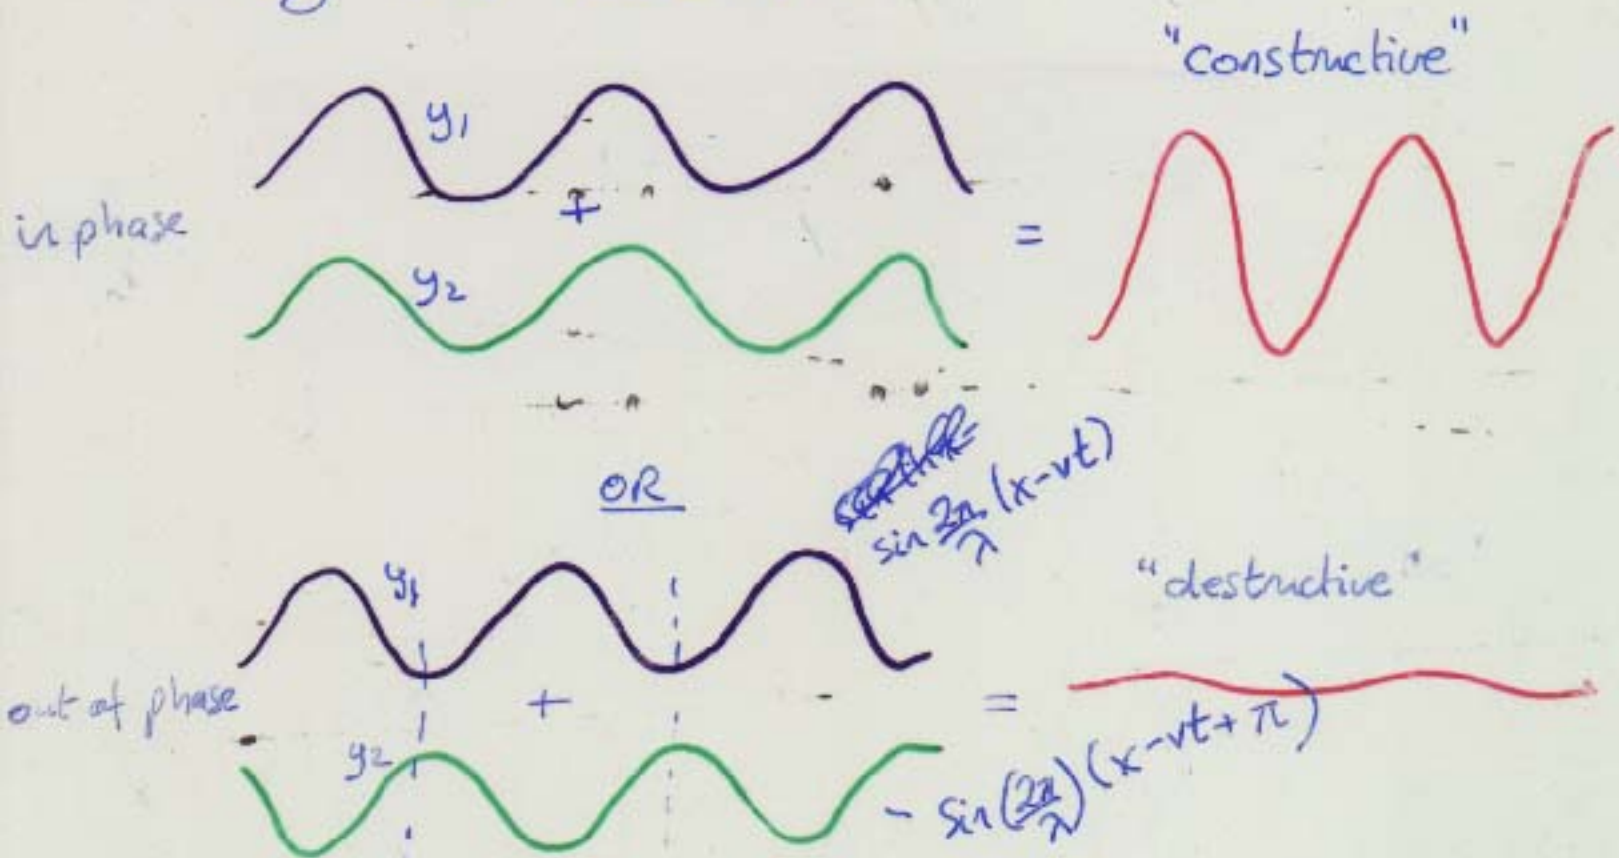 "constructive"
y1
+
in phase
=
y2
OR
sin 2π/λ (x-vt)
y1
"destructive"
out of phase
+
=
y2
- sin (2π/λ) (x-vt+π)